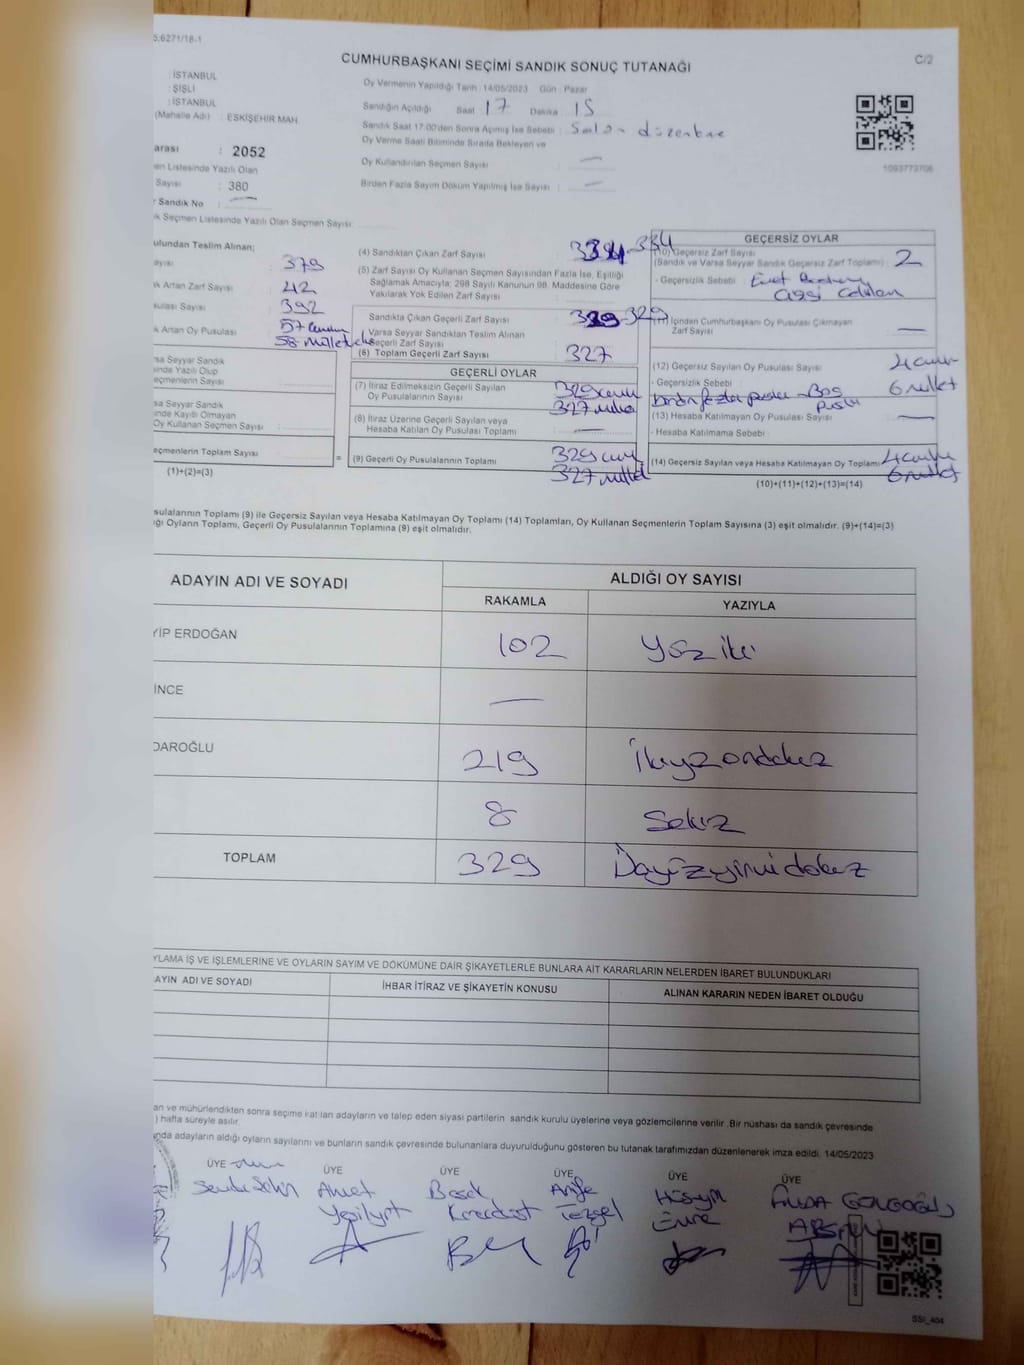 5.6271/18-1
C/2
CUMHURBAŞKANI SEÇİMİ SANDIK SONUÇ TUTANAĞI
: İSTANBUL
: ŞİŞLİ
: İSTANBUL
(Mahalle Adı) : ESKİŞEHİR MAH
arası : 2052
en Listesinde Yazılı Olan
Sayısı : 380
r Sandık No : —
k Seçmen Listesinde Yazılı Olan Seçmen Sayısı
Oy Vermenin Yapıldığı Tarih :14/05/2023 Gün : Pazar
Sandığın Açıldığı Saat : 17 Dakika : 15
Sandık Saat 17:00'den Sonra Açılmış İse Sebebi :
Oy Verme Saati Bitiminde Sırada Bekleyen ve
Oy Kullandırılan Seçmen Sayısı : —
Birden Fazla Sayım Döküm Yapılmış İse Sayısı : —
1093773706
ulundan Teslim Alınan;
ayısı : 379
k Artan Zarf Sayısı : 42
sulası Sayısı : 392
k Artan Oy Pusulası : 57
58
rsa Seyyar Sandık
sinde Yazılı Olup
eçmenlerin Sayısı :
sa Seyyar Sandık
inde Kayıtlı Olmayan
Oy Kullanan Seçmen Sayısı :
eçmenlerin Toplam Sayısı
(1)+(2)=(3)
(4) Sandıktan Çıkan Zarf Sayısı : 334
(5) Zarf Sayısı Oy Kullanan Seçmen Sayısından Fazla İse, Eşitliği
Sağlamak Amacıyla; 298 Sayılı Kanunun 98. Maddesine Göre
Yakılarak Yok Edilen Zarf Sayısı :
Sandıkta Çıkan Geçerli Zarf Sayısı : 329
Varsa Seyyar Sandıktan Teslim Alınan
Geçerli Zarf Sayısı
(6) Toplam Geçerli Zarf Sayısı : 327
GEÇERLİ OYLAR
(7) İtiraz Edilmeksizin Geçerli Sayılan
Oy Pusulalarının Sayısı : 329
327
(8) İtiraz Üzerine Geçerli Sayılan veya
Hesaba Katılan Oy Pusulası Toplamı : —
= (9) Geçerli Oy Pusulalarının Toplamı : 329
327 millet
GEÇERSİZ OYLAR
(10) Geçersiz Zarf Sayısı
(Sandık ve Varsa Seyyar Sandık Geçersiz Zarf Toplamı) : 2
- Geçersizlik Sebebi :
(11) İçinden Cumhurbaşkanı Oy Pusulası Çıkmayan
Zarf Sayısı : —
(12) Geçersiz Sayılan Oy Pusulası Sayısı : 4
- Geçersizlik Sebebi 6 millet
(13) Hesaba Katılmayan Oy Pusulası Sayısı : —
- Hesaba Katılmama Sebebi
(14) Geçersiz Sayılan veya Hesaba Katılmayan Oy Toplamı : 4
6 millet
(10)+(11)+(12)+(13)=(14)
sulalarının Toplamı (9) ile Geçersiz Sayılan veya Hesaba Katılmayan Oy Toplamı (14) Toplamları, Oy Kullanan Seçmenlerin Toplam Sayısına (3) eşit olmalıdır. (9)+(14)=(3)
ığı Oyların Toplamı, Geçerli Oy Pusulalarının Toplamına (9) eşit olmalıdır.
ADAYIN ADI VE SOYADI
ALDIĞI OY SAYISI
RAKAMLA YAZIYLA
YİP ERDOĞAN 102 Yüz iki
İNCE —
DAROĞLU 219 İkiyüzondokuz
8 Sekiz
TOPLAM 329 Üçyüzyirmidokuz
YLAMA İŞ VE İŞLEMLERİNE VE OYLARIN SAYIM VE DÖKÜMÜNE DAİR ŞİKAYETLERLE BUNLARA AİT KARARLARIN NELERDEN İBARET BULUNDUKLARI
AYIN ADI VE SOYADI İHBAR İTİRAZ VE ŞİKAYETİN KONUSU ALINAN KARARIN NEDEN İBARET OLDUĞU
an ve mühürlendikten sonra seçime katılan adayların ve talep eden siyasi partilerin sandık kurulu üyelerine veya gözlemcilerine verilir. Bir nüshası da sandık çevresinde
) hafta süreyle asılır.
ında adayların aldığı oyların sayılarını ve bunların sandık çevresinde bulunanlara duyurulduğunu gösteren bu tutanak tarafımızdan düzenlenerek imza edildi. 14/05/2023
ÜYE ÜYE ÜYE ÜYE ÜYE ÜYE
Ahmet Yeşilyurt
Arife Tezgel
Hüseyin Emre
SSI_404